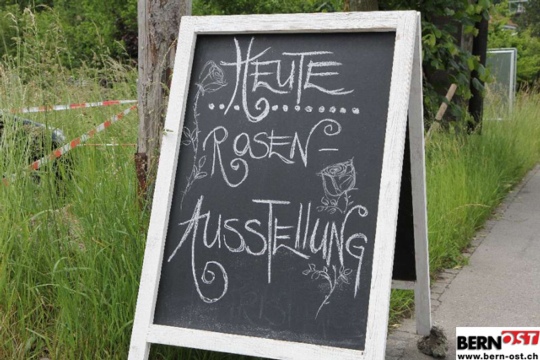 HEUTE
ROSEN-
AUSSTELLUNG
BERNOST
www.bern-ost.ch